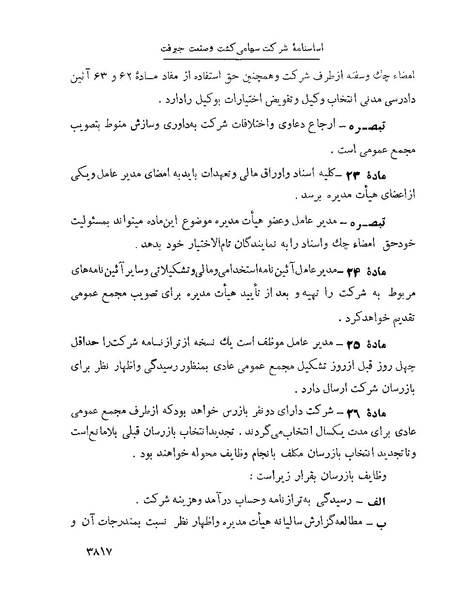 اساسنامهٔ شرکت سهامی کشت و صنعت جیرفت
امضاء چك وسفته ازطرف شرکت وهمچنین حق استفاده از مفاد مادهٔ ۶۲ و ۶۳ آئین
دادرسی مدنی انتخاب وکیل وتفویض اختیارات بوکیل رادارد .
تبصره – ارجاع دعاوی واختلافات شرکت به‌داوری وسازش منوط بتصویب
مجمع عمومی است .
مادهٔ ۲۳ – کلیه اسناد واوراق مالی وتعهدات بایدبه امضای مدیر عامل ویکی
ازاعضای هیأت مدیره برسد .
تبصره – مدیر عامل وعضو هیأت مدیره موضوع این‌ماده میتواند بمسئولیت
خودحق امضاء چك واسناد را به نمایندگان تام‌الاختیار خود بدهد .
مادهٔ ۲۴ – مدیرعامل آئین نامه استخدامی ومالی وتشکیلاتی وسایر آئین‌نامه‌های
مربوط به شرکت را تهیه و بعد از تأیید هیأت مدیره برای تصویب مجمع عمومی
تقدیم خواهدکرد .
مادهٔ ۲۵ – مدیر عامل موظف است یك نسخه از ترازنامه شرکت‌را حداقل
چهل روز قبل ازروز تشکیل مجمع عمومی عادی بمنظور رسیدگی واظهار نظر برای
بازرسان شرکت ارسال دارد .
مادهٔ ۲۶ – شرکت دارای دونفر بازرس خواهد بودکه ازطرف مجمع عمومی
عادی برای مدت یکسال انتخاب‌می‌گردند . تجدیدانتخاب بازرسان قبلی بلامانع‌است
وتاتجدید انتخاب بازرسان مکلف بانجام وظایف محوله خواهند بود .
وظایف بازرسان بقرار زیراست :
الف – رسیدگی به‌ترازنامه وحساب درآمد وهزینه شرکت .
ب – مطالعه‌گزارش سالیانه هیأت مدیره واظهار نظر نسبت بمندرجات آن و
۳۸۱۷